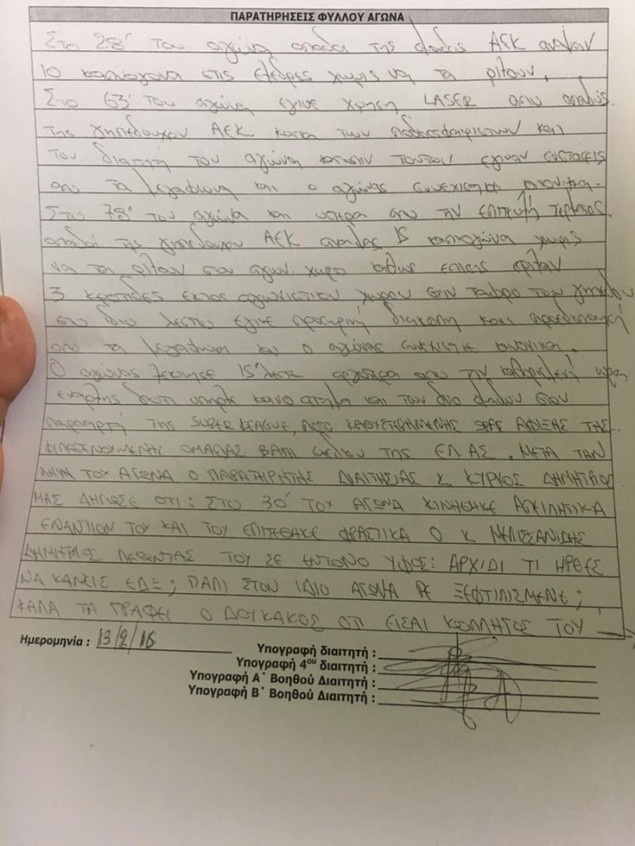 ΠΑΡΑΤΗΡΗΣΕΙΣ ΦΥΛΛΟΥ ΑΓΩΝΑ
Στο 28' του αγώνα οπαδοί της ΑΕΚ άναψαν
10 καπνογόνα στις εξέδρες χωρίς να τα ρίξουν.
Στο 63' του αγώνα έγινε χρήση LASER από οπαδούς
της γηπεδούχου ΑΕΚ κατά των ποδοσφαιριστών και
του διαιτητή του αγώνα κατόπιν τούτου έγιναν συστάσεις
από τα μεγάφωνα και ο αγώνας συνεχίστηκε κανονικά.
Στο 78' του αγώνα και ύστερα από την επίτευξη τέρματος
οπαδοί της γηπεδούχου ΑΕΚ άναψαν 15 καπνογόνα χωρίς
να τα ρίξουν στον αγων. χώρο καθώς επίσης έριξαν
3 κροτίδες εκτός αγωνιστικού χώρου στην τάφρο του γηπέδου
στο ίδιο λεπτό έγινε προσωρινή διακοπή και προειδοποίηση
από τα μεγάφωνα και ο αγώνας συνεχίστηκε κανονικά.
Ο αγώνας ξεκίνησε 15' λεπτά αργότερα από την καθορισμένη ώρα
έναρξης διότι υπήρξε κοινό αίτημα και των δύο στον
παρατηρητή της SUPER LEAGUE, λόγω καθυστερημένης ΑΦΙΞΗΣ ΤΗΣ
ΦΙΛΟΞΕΝΟΥΜΕΝΗΣ ΟΜΑΔΑΣ ΒΑΣΗ ΤΗΣ ΕΛ.ΑΣ. ΜΕΤΑ ΤΗΝ
ΛΗΞΗ ΤΟΥ ΑΓΩΝΑ Ο ΠΑΡΑΤΗΡΗΤΗΣ ΔΙΑΙΤΗΣΙΑΣ Κ. ΚΥΡΙΟΣ ΔΗΜΗΤΡΙΟΣ
ΜΑΣ ΔΗΛΩΣΕ ΟΤΙ: ΣΤΟ 30' ΤΟΥ ΑΓΩΝΑ ΚΙΝΗΘΗΚΕ ΑΠΕΙΛΗΤΙΚΑ
ΕΝΑΝΤΙΟΝ ΤΟΥ ΚΑΙ ΤΟΥ ΕΠΙΤΕΘΗΚΕ ΦΡΑΣΤΙΚΑ Ο κ. ΜΕΛΙΣΣΑΝΙΔΗΣ
ΔΗΜΗΤΡΙΟΣ ΛΕΓΟΝΤΑΣ ΤΟΥ ΣΕ ΕΝΤΟΝΟ ΥΦΟΣ: ΑΡΧΙΔΙ ΤΙ ΗΡΘΕΣ
ΝΑ ΚΑΝΕΙΣ ΕΔΩ; ΠΑΛΙ ΣΤΟΝ ΙΔΙΟ ΑΓΩΝΑ ΡΕ ΞΕΦΤΙΛΙΣΜΕΝΕ;
ΚΑΛΑ ΤΑ ΓΡΑΦΕΙ Ο ΔΟΥΚΑΚΟΣ ΟΤΙ ΕΙΣΑΙ ΚΩΛΛΗΤΟΣ ΤΟΥ
Ημερομηνία : 13/2/16
Υπογραφή διαιτητή :
Υπογραφή 4ου διαιτητή :
Υπογραφή Α΄ Βοηθού Διαιτητή :
Υπογραφή Β΄ Βοηθού Διαιτητή :